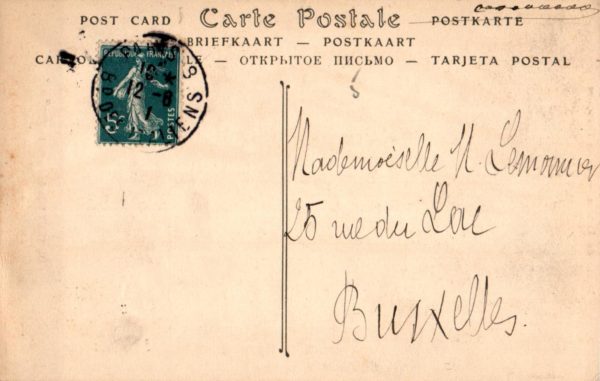 POST CARD Carte Postale POSTKARTE
BRIEFKAART — POSTKAART
— ОТКРЫТОЕ ПИСЬМО — TARJETA POSTAL
POSTES
5
Mademoiselle N. Lemonnier
25 rue du Lac
Bruxelles.